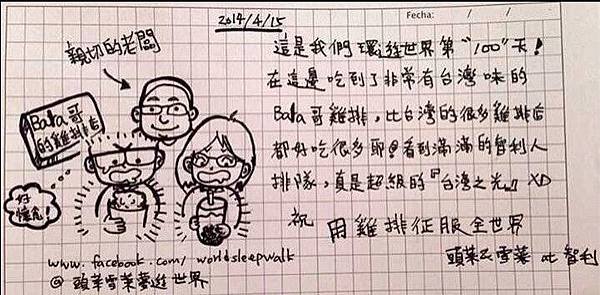 2014/4/15
Fecha: / /
親切的老闆
Bala哥
的雞排店
好
懷念！
這是我們環遊世界第"100"天！
在這邊吃到了非常有台灣味的
Bala哥雞排，比台灣的很多雞排店
都好吃很多耶！看到滿滿的智利人
排隊，真是超級的『台灣之光』XD
祝 用雞排征服全世界
頭茱&雪萊 at 智利
www.facebook.com/worldsleepwalk
@ 頭茱雪萊夢遊世界